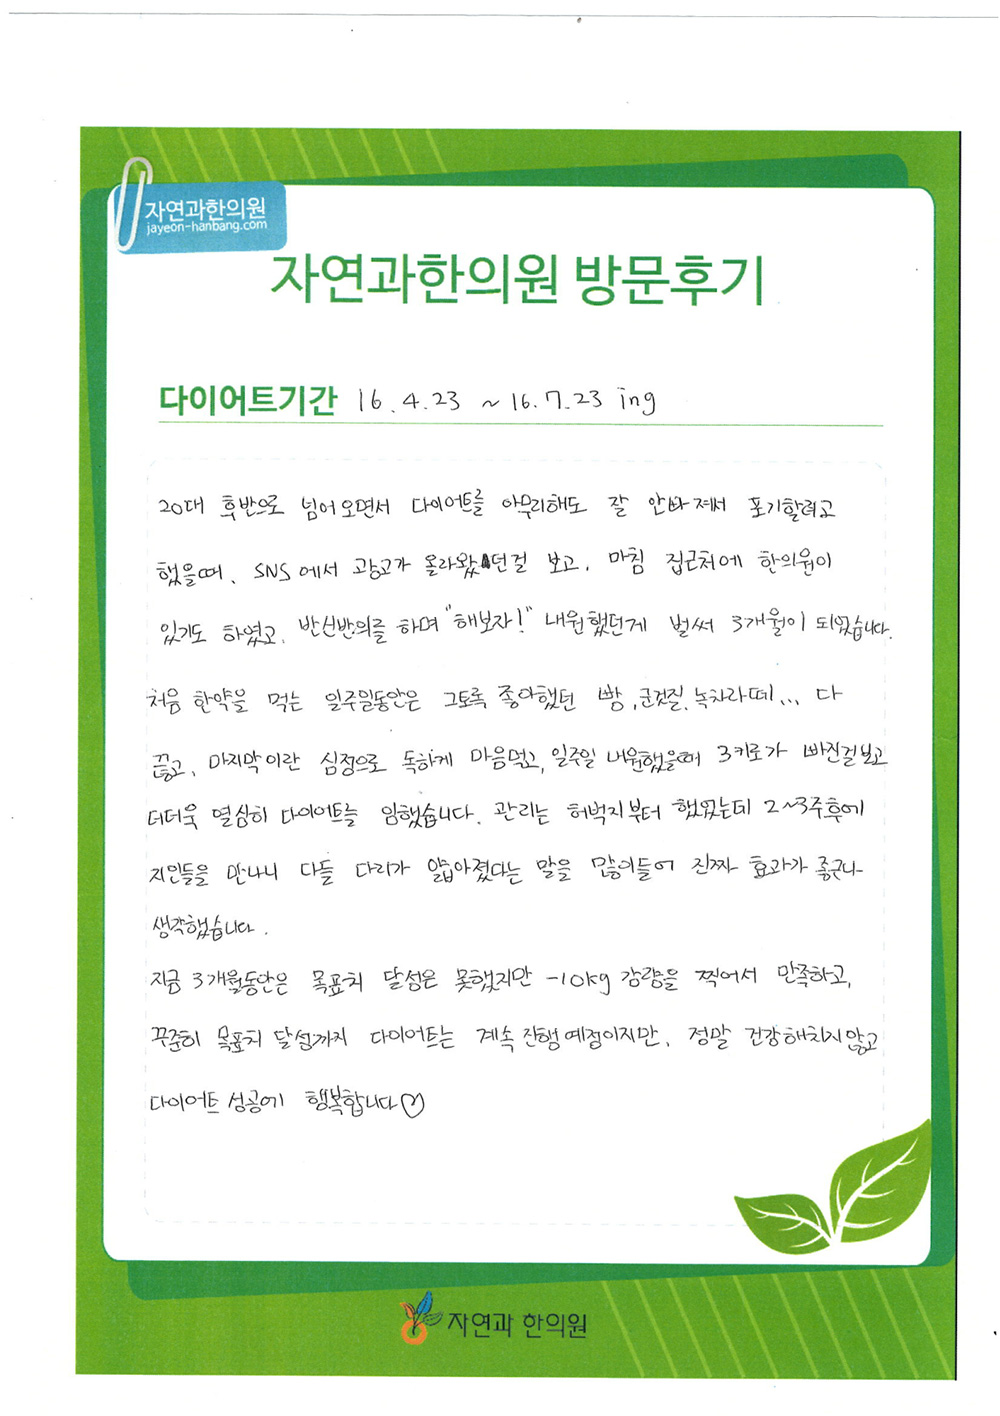 자연과한의원
jayeon-hanbang.com
자연과한의원 방문후기
다이어트기간 16.4.23 ~ 16.7.23 ing
20대 후반으로 넘어오면서 다이어트를 아무리해도 잘 안빠져서 포기할려고
했을때, SNS에서 광고가 올라왔던걸 보고, 마침 집근처에 한의원이
있기도 하였고, 반신반의를 하며 "해보자!" 내원했던게 벌써 3개월이 되었습니다.
처음 한약을 먹는 일주일동안은 그토록 좋아했던 빵, 군것질, 녹차라떼... 다
끊고, 마지막이란 심정으로 독하게 마음먹고, 일주일 내원했을때 3키로가 빠진걸보고
더더욱 열심히 다이어트를 임했습니다. 관리는 허벅지부터 했었는데 2~3주후에
지인들을 만나니 다들 다리가 얇아졌다는 말을 많이들어 진짜 효과가 좋구나
생각했습니다.
지금 3개월동안은 목표치 달성은 못했지만 -10kg 감량을 찍어서 만족하고,
꾸준히 목표치 달성까지 다이어트는 계속 진행예정이지만, 정말 건강해치지않고
다이어트 성공에 행복합니다♡
자연과 한의원